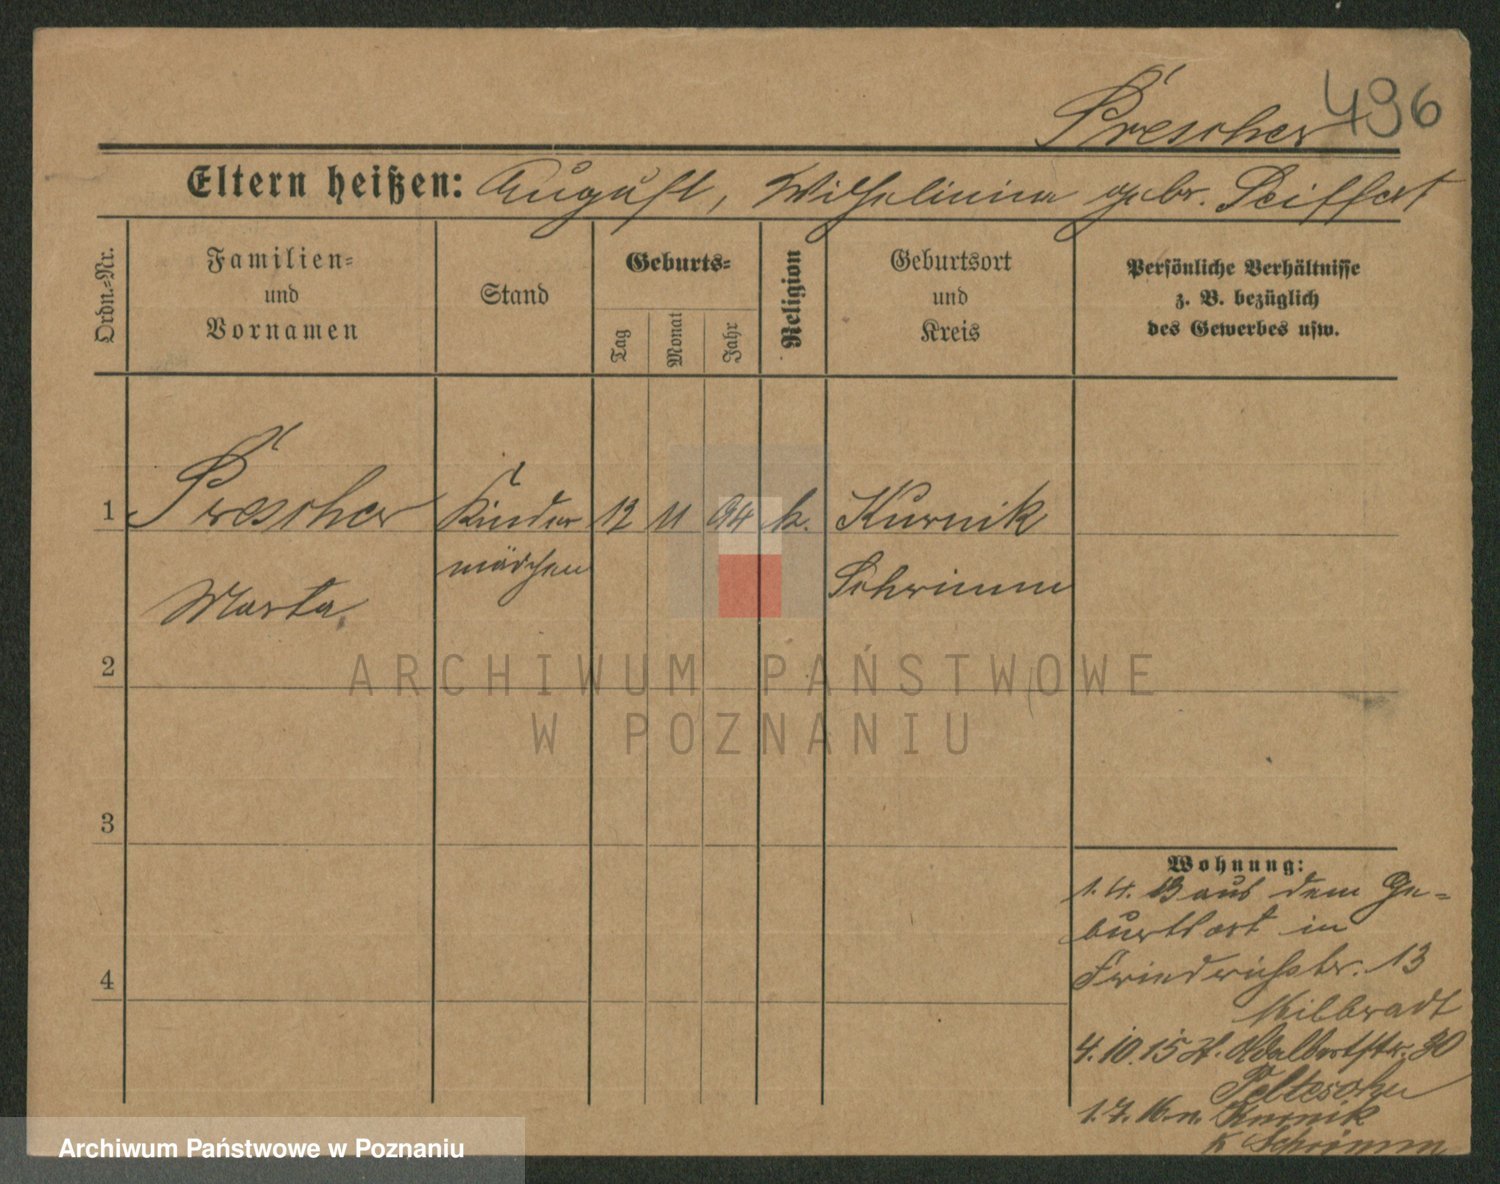 496
Prescher
Eltern heißen: August, Wilhelmina gebr. Seiffert
Ordn.-Nr.
Familien-
und
Vornamen
Stand
Geburts-
Tag
Monat
Jahr
Religion
Geburtsort
und
Kreis
Persönliche Verhältnisse
z. B. bezüglich
des Gewerbes usw.
1
Prescher
Marta
Kinder
mädchen
12
11
94
k.
Kurnik
Schrimm
2
3
4
Wohnung:
1. 4. 13 aus dem Ge-
burtsort in
Friedrichstr. 13
Milbradt
4. 10. 15 Adalbertstr. 30
1. 7. 16 n. Kurnik
K Schrimm
ARCHIWUM PAŃSTWOWE
W POZNANIU
Archiwum Państwowe w Poznaniu